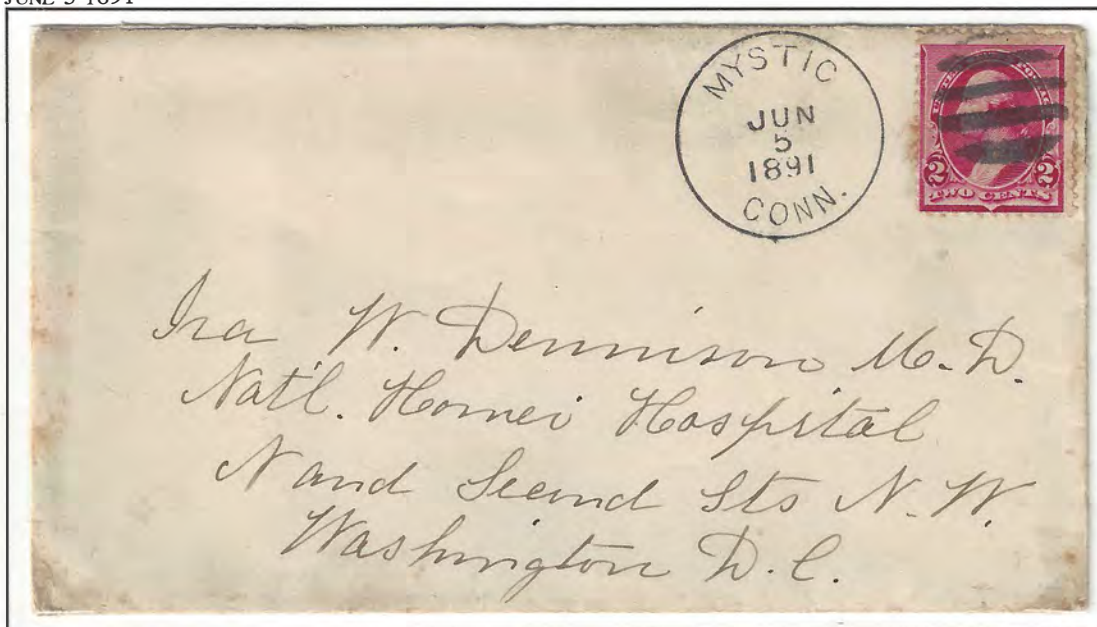 JUNE 5 1891
MYSTIC
JUN
5
1891
CONN.
UNITED STATES POSTAGE
2 2
TWO CENTS
Ira W. Dennison M.D.
Natl. Homei Hospital
N and Second Sts N.W.
Washington D.C.